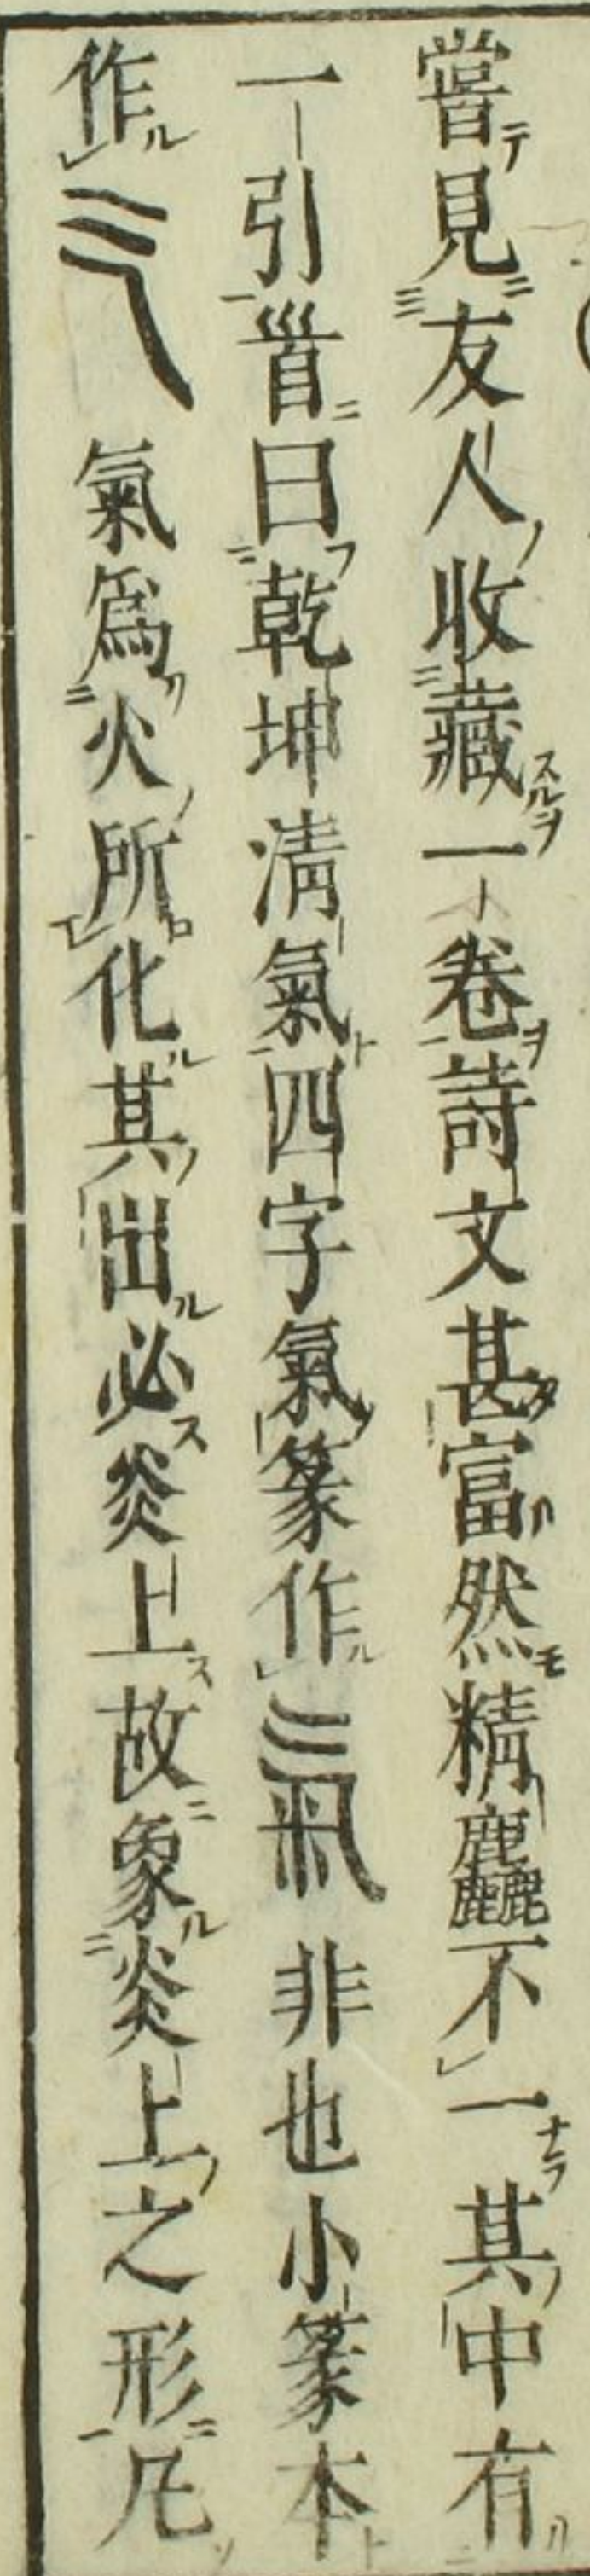 嘗見友人收藏一卷詩文甚富然精麤不一其中有
一引𩠐曰乾坤清氣四字氣篆作氣非也小篆本
作气氣爲火所化其出必炎上故象炎上之形凡